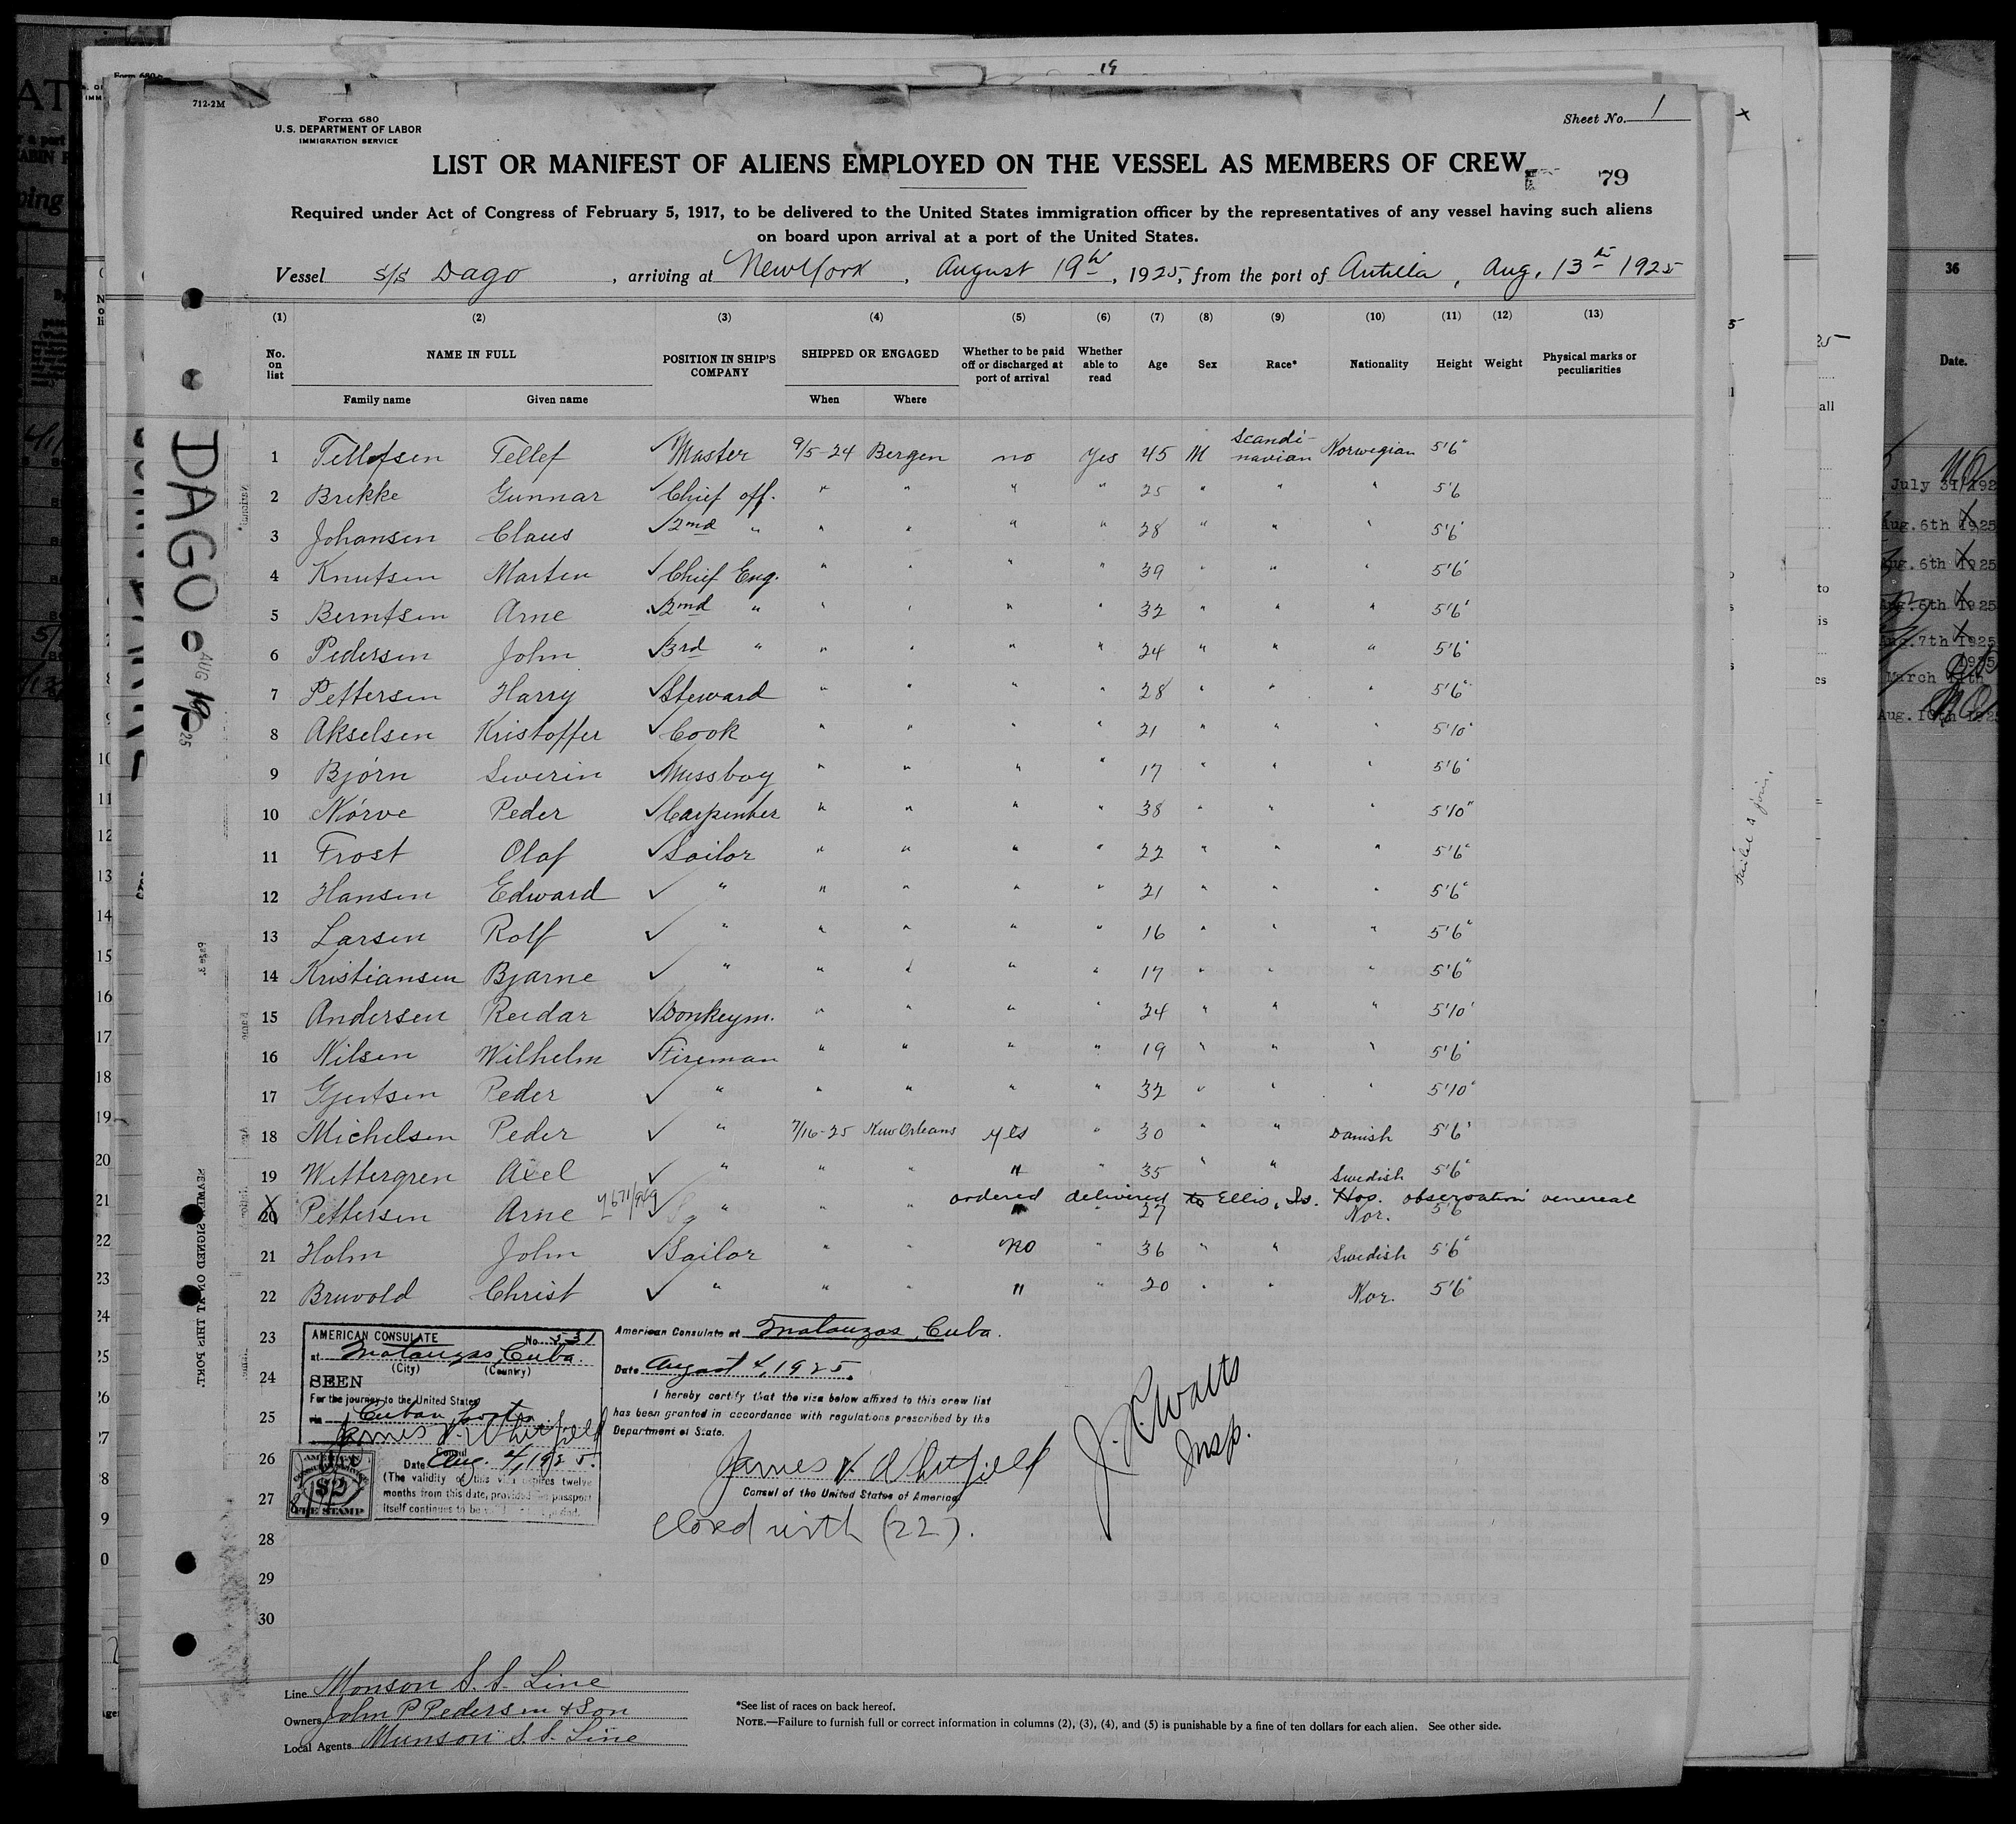 19
712-2M
Form 680
U.S. DEPARTMENT OF LABOR
IMMIGRATION SERVICE
Sheet No. 1
LIST OR MANIFEST OF ALIENS EMPLOYED ON THE VESSEL AS MEMBERS OF CREW
79
Required under Act of Congress of February 5, 1917, to be delivered to the United States immigration officer by the representatives of any vessel having such aliens
on board upon arrival at a port of the United States.
Vessel S/S Dago, arriving at New York, August 19th, 1925, from the port of Antilla, Aug, 13th 1925
(1) (2) (3) (4) (5) (6) (7) (8) (9) (10) (11) (12) (13)
No. on list NAME IN FULL Family name Given name POSITION IN SHIP'S COMPANY SHIPPED OR ENGAGED When Where Whether to be paid off or discharged at port of arrival Whether able to read Age Sex Race* Nationality Height Weight Physical marks or peculiarities
1 Tellefsen Tellef ✓Master 9/5-24 Bergen no yes 45 M Scandinavian Norwegian 5'6"
2 Brekke Gunnar ✓Chief off. " " " " 25 " " " 5'6
3 Johansen Claus ✓2nd " " " " " 28 " " " 5'6"
4 Knutsen Marten ✓Chief Eng. " " " " 39 " " " 5'6"
5 Berntsen Arne ✓2nd " " " " " 32 " " " 5'6"
6 Pedersen John ✓3rd " " " " " 24 " " " 5'6"
7 Pettersen Harry ✓Steward " " " " 28 " " " 5'6"
8 Akselsen Kristoffer ✓Cook " " " " 21 " " " 5'10"
9 Bjørn Severin ✓Messboy " " " " 17 " " " 5'6"
10 Nørve Peder ✓Carpenter " " " " 38 " " " 5'10"
11 Frost Olaf ✓Sailor " " " " 22 " " " 5'6"
12 Hansen Edward ✓ " " " " " 21 " " " 5'6"
13 Larsen Rolf ✓ " " " " " 16 " " " 5'6"
14 Kristiansen Bjarne ✓ " " " " " 17 " " " 5'6"
15 Andersen Reidar ✓Donkeym. " " " " 24 " " " 5'10"
16 Nilsen Wilhelm ✓Fireman " " " " 19 " " " 5'6"
17 Gjertsen Peder ✓ " " " " " 32 " " " 5'10"
18 Michelsen Peder ✓ " 7/16-25 New Orleans yes " 30 " " Danish 5'6"
19 Wettergren Axel ✓ " " " " " 35 " " Swedish 5'6"
ordered delivered to Ellis. Is. Hos. observation venereal
20 Pettersen Arne ✓ " " " " " 27 Nor. 5'6
21 Holm John ✓Sailor " " no " 36 " " Swedish 5'6"
22 Bruvold Christ ✓ " " " " " 20 " " Nor. 5'6"
23
24
25
26
27
28
29
30
AMERICAN CONSULATE No. 531
at Matanzas, Cuba.
(City) (Country)
SEEN
For the journey to the United States
via Cuban ports
James V. Whitfield
Consul
Date Aug. 4, 1925.
(The validity of this visa expires twelve
months from this date, provided the passport
itself continues to be valid for that period.
AMERICAN
$2
FEE STAMP
American Consulate at Matanzas, Cuba.
Date August 4, 1925.
I hereby certify that the visa below affixed to this crew list
has been granted in accordance with regulations prescribed by the
Department of State.
James V. Whitfield
Consul of the United States of America
closed with (22).
J. R. Watts
Insp.
Line Monson S. S. Line
Owners John P Pedersen & Son
Local Agents Munson S. S. Line
*See list of races on back hereof.
NOTE.—Failure to furnish full or correct information in columns (2), (3), (4), and (5) is punishable by a fine of ten dollars for each alien. See other side.
DAGO
AUG 19 25
36
Date.
July 31/192
Aug. 6th 1925
Aug. 6th 1925
Aug. 6th 1925
Aug. 7th 1925
1925
March 11th
Aug. 10th 1925